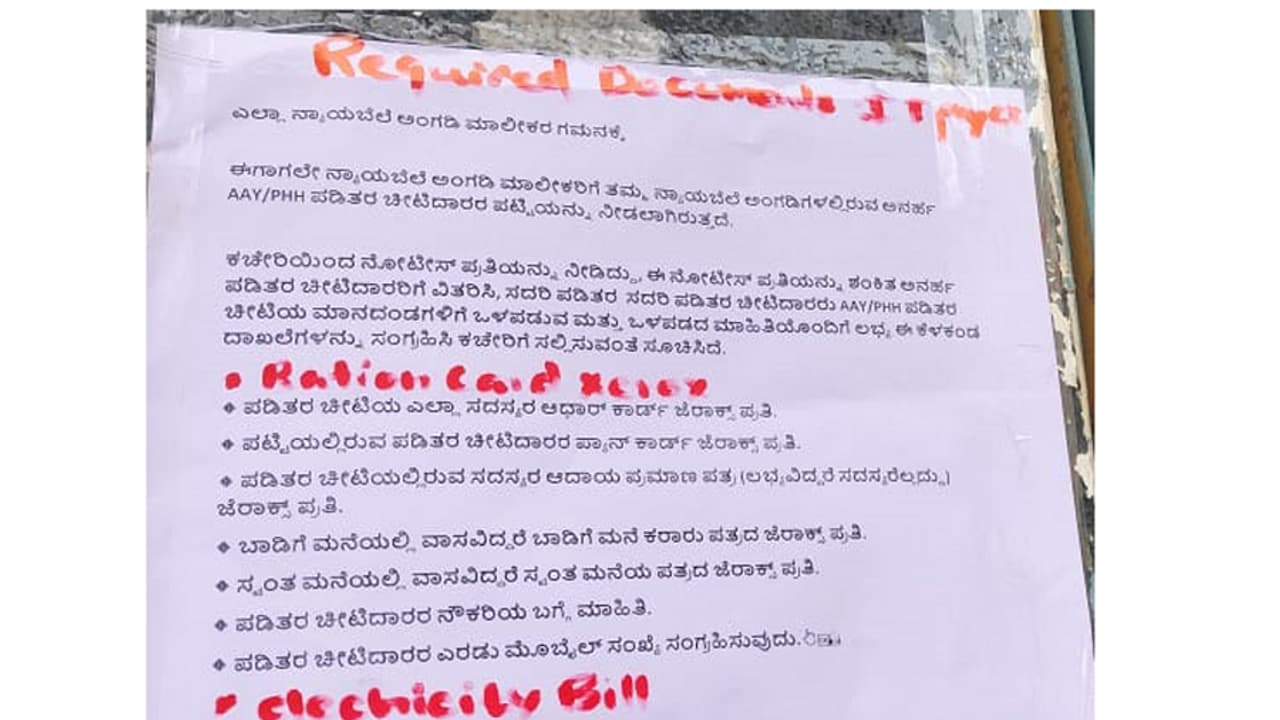 Required Documents IT payer
ಎಲ್ಲಾ ನ್ಯಾಯಬೆಲೆ ಅಂಗಡಿ ಮಾಲೀಕರ ಗಮನಕ್ಕೆ
ಈಗಾಗಲೇ ನ್ಯಾಯಬೆಲೆ ಅಂಗಡಿ ಮಾಲೀಕರಿಗೆ ತಮ್ಮ ನ್ಯಾಯಬೆಲೆ ಅಂಗಡಿಗಳಲ್ಲಿರುವ ಅನರ್ಹ
AAY/PHH ಪಡಿತರ ಚೀಟಿದಾರರ ಪಟ್ಟಿಯನ್ನು ನೀಡಲಾಗಿರುತ್ತದೆ.
ಕಚೇರಿಯಿಂದ ನೋಟೀಸ್ ಪ್ರತಿಯನ್ನು ನೀಡಿದ್ದು, ಈ ನೋಟೀಸ್ ಪ್ರತಿಯನ್ನು ಶಂಕಿತ ಅನರ್ಹ
ಪಡಿತರ ಚೀಟಿದಾರರಿಗೆ ವಿತರಿಸಿ, ಸದರಿ ಪಡಿತರ ಸದರಿ ಪಡಿತರ ಚೀಟಿದಾರರು AAY/PHH ಪಡಿತರ
ಚೀಟಿಯ ಮಾನದಂಡಗಳಿಗೆ ಒಳಪಡುವ ಮತ್ತು ಒಳಪಡದ ಮಾಹಿತಿಯೊಂದಿಗೆ ಲಭ್ಯ ಈ ಕೆಳಕಂಡ
ದಾಖಲೆಗಳನ್ನು ಸಂಗ್ರಹಿಸಿ ಕಚೇರಿಗೆ ಸಲ್ಲಿಸುವಂತೆ ಸೂಚಿಸಿದೆ.
• Ration Card xerox
❖ ಪಡಿತರ ಚೀಟಿಯ ಎಲ್ಲಾ ಸದಸ್ಯರ ಆಧಾರ್ ಕಾರ್ಡ್ ಜೆರಾಕ್ಸ್ ಪ್ರತಿ.
❖ ಪಟ್ಟಿಯಲ್ಲಿರುವ ಪಡಿತರ ಚೀಟಿದಾರರ ಪ್ಯಾನ್ ಕಾರ್ಡ್ ಜೆರಾಕ್ಸ್ ಪ್ರತಿ.
❖ ಪಡಿತರ ಚೀಟಿಯಲ್ಲಿರುವ ಸದಸ್ಯರ ಆದಾಯ ಪ್ರಮಾಣ ಪತ್ರ (ಲಭ್ಯವಿದ್ದರೆ ಸದಸ್ಯರೆಲ್ಲದ್ದು)
ಜೆರಾಕ್ಸ್ ಪ್ರತಿ.
❖ ಬಾಡಿಗೆ ಮನೆಯಲ್ಲಿ ವಾಸವಿದ್ದರೆ ಬಾಡಿಗೆ ಮನೆ ಕರಾರು ಪತ್ರದ ಜೆರಾಕ್ಸ್ ಪ್ರತಿ.
❖ ಸ್ವಂತ ಮನೆಯಲ್ಲಿ ವಾಸವಿದ್ದರೆ ಸ್ವಂತ ಮನೆಯ ಪತ್ರದ ಜೆರಾಕ್ಸ್ ಪ್ರತಿ.
❖ ಪಡಿತರ ಚೀಟಿದಾರರ ನೌಕರಿಯ ಬಗ್ಗೆ ಮಾಹಿತಿ.
❖ ಪಡಿತರ ಚೀಟಿದಾರರ ಎರಡು ಮೊಬೈಲ್ ಸಂಖ್ಯೆ ಸಂಗ್ರಹಿಸುವುದು.
• Electricity Bill